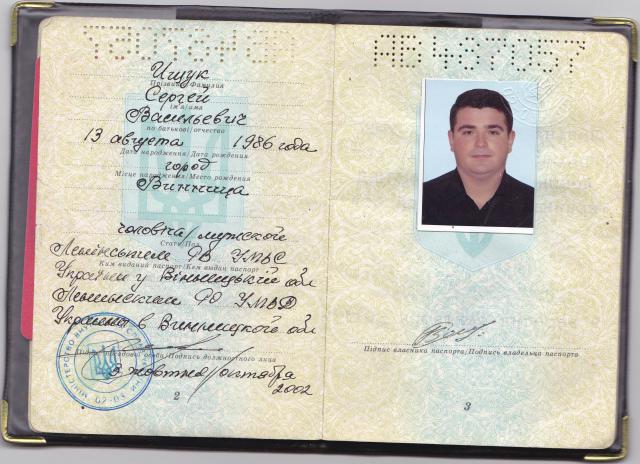 Ищук
Прізвище/Фамилия
Сергей
Ім'я/имя
Васильевич
по батькові/отчество
13 августа 1986 года
Дата народження/Дата рождения
город
Місце народження/Место рождения
Винница
чоловіча/мужской
Стать/Пол
Ленінським РВ УМВС
Ким виданий паспорт/Кем выдан паспорт
України у Вінницькій обл
Ленинским РО УМВД
Украины в Винницкой обл
Підпис посадової особи/Подпись должностного лица
3 жовтня/октября
2002
2
АВ 487057
Підпис власника паспорта/Подпись владельца паспорта
3